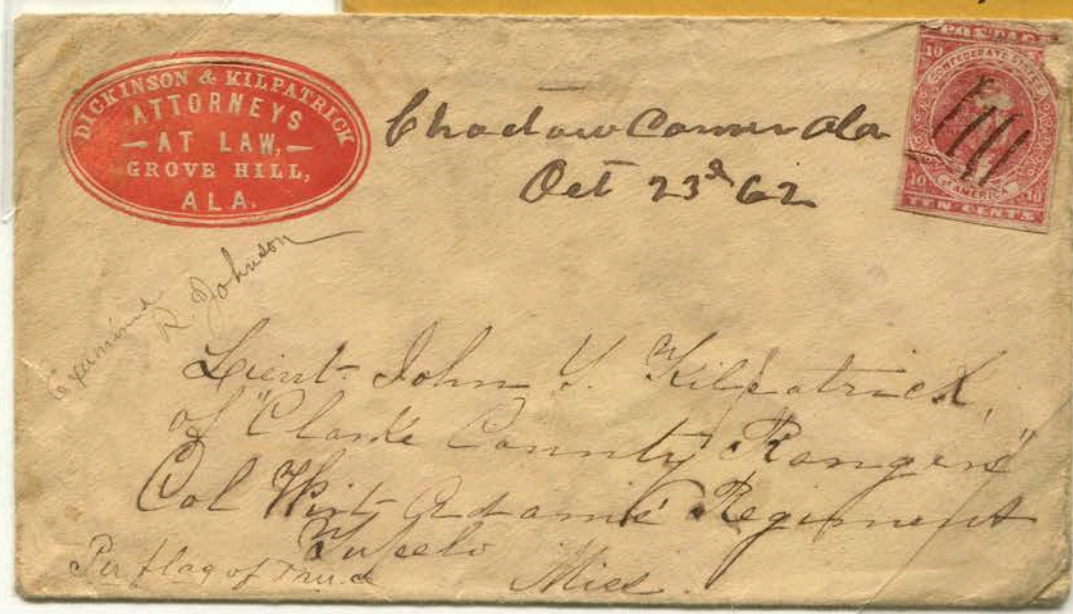 DICKINSON & KILPATRICK
ATTORNEYS
AT LAW,
GROVE HILL,
ALA.
Choctaw Corner Ala
Oct 23d 62
POSTAGE
10
CONFEDERATE STATES
OF AMERICA
10 10
TEN CENTS
Examined
R. Johnson
Lieut John Y. Kilpatrick,
of "Clarke County Rangers"
Col Wirt Adams' Regiment
Tupelo
Miss.
Per flag of Truce